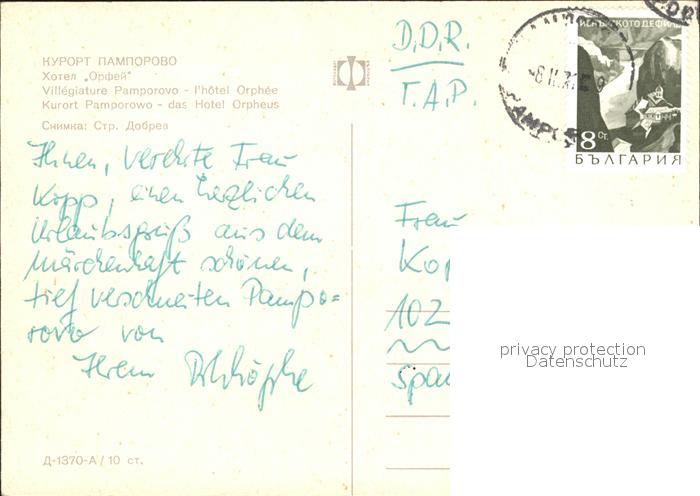 КУРОРТ ПАМПОРОВО
Хотел „Орфей"
Villégiature Pamporovo - l'hôtel Orphée
Kurort Pamporowo - das Hotel Orpheus
Снимка: Стр. Добрев
Ihnen, verehrte Frau
Kopp, einen herzlichen
Urlaubsgruß aus dem
märchenhaft schönen,
tief verschneiten Pampo=
rovo von
Ihrem
Д-1370-А / 10 ст.
D.D.R.
Г.А.Р.
Frau
Kop
102
Spa
ИСКЪРСКОТО ДЕФИЛЕ
8 Ст.
БЪЛГАРИЯ
privacy protection
Datenschutz